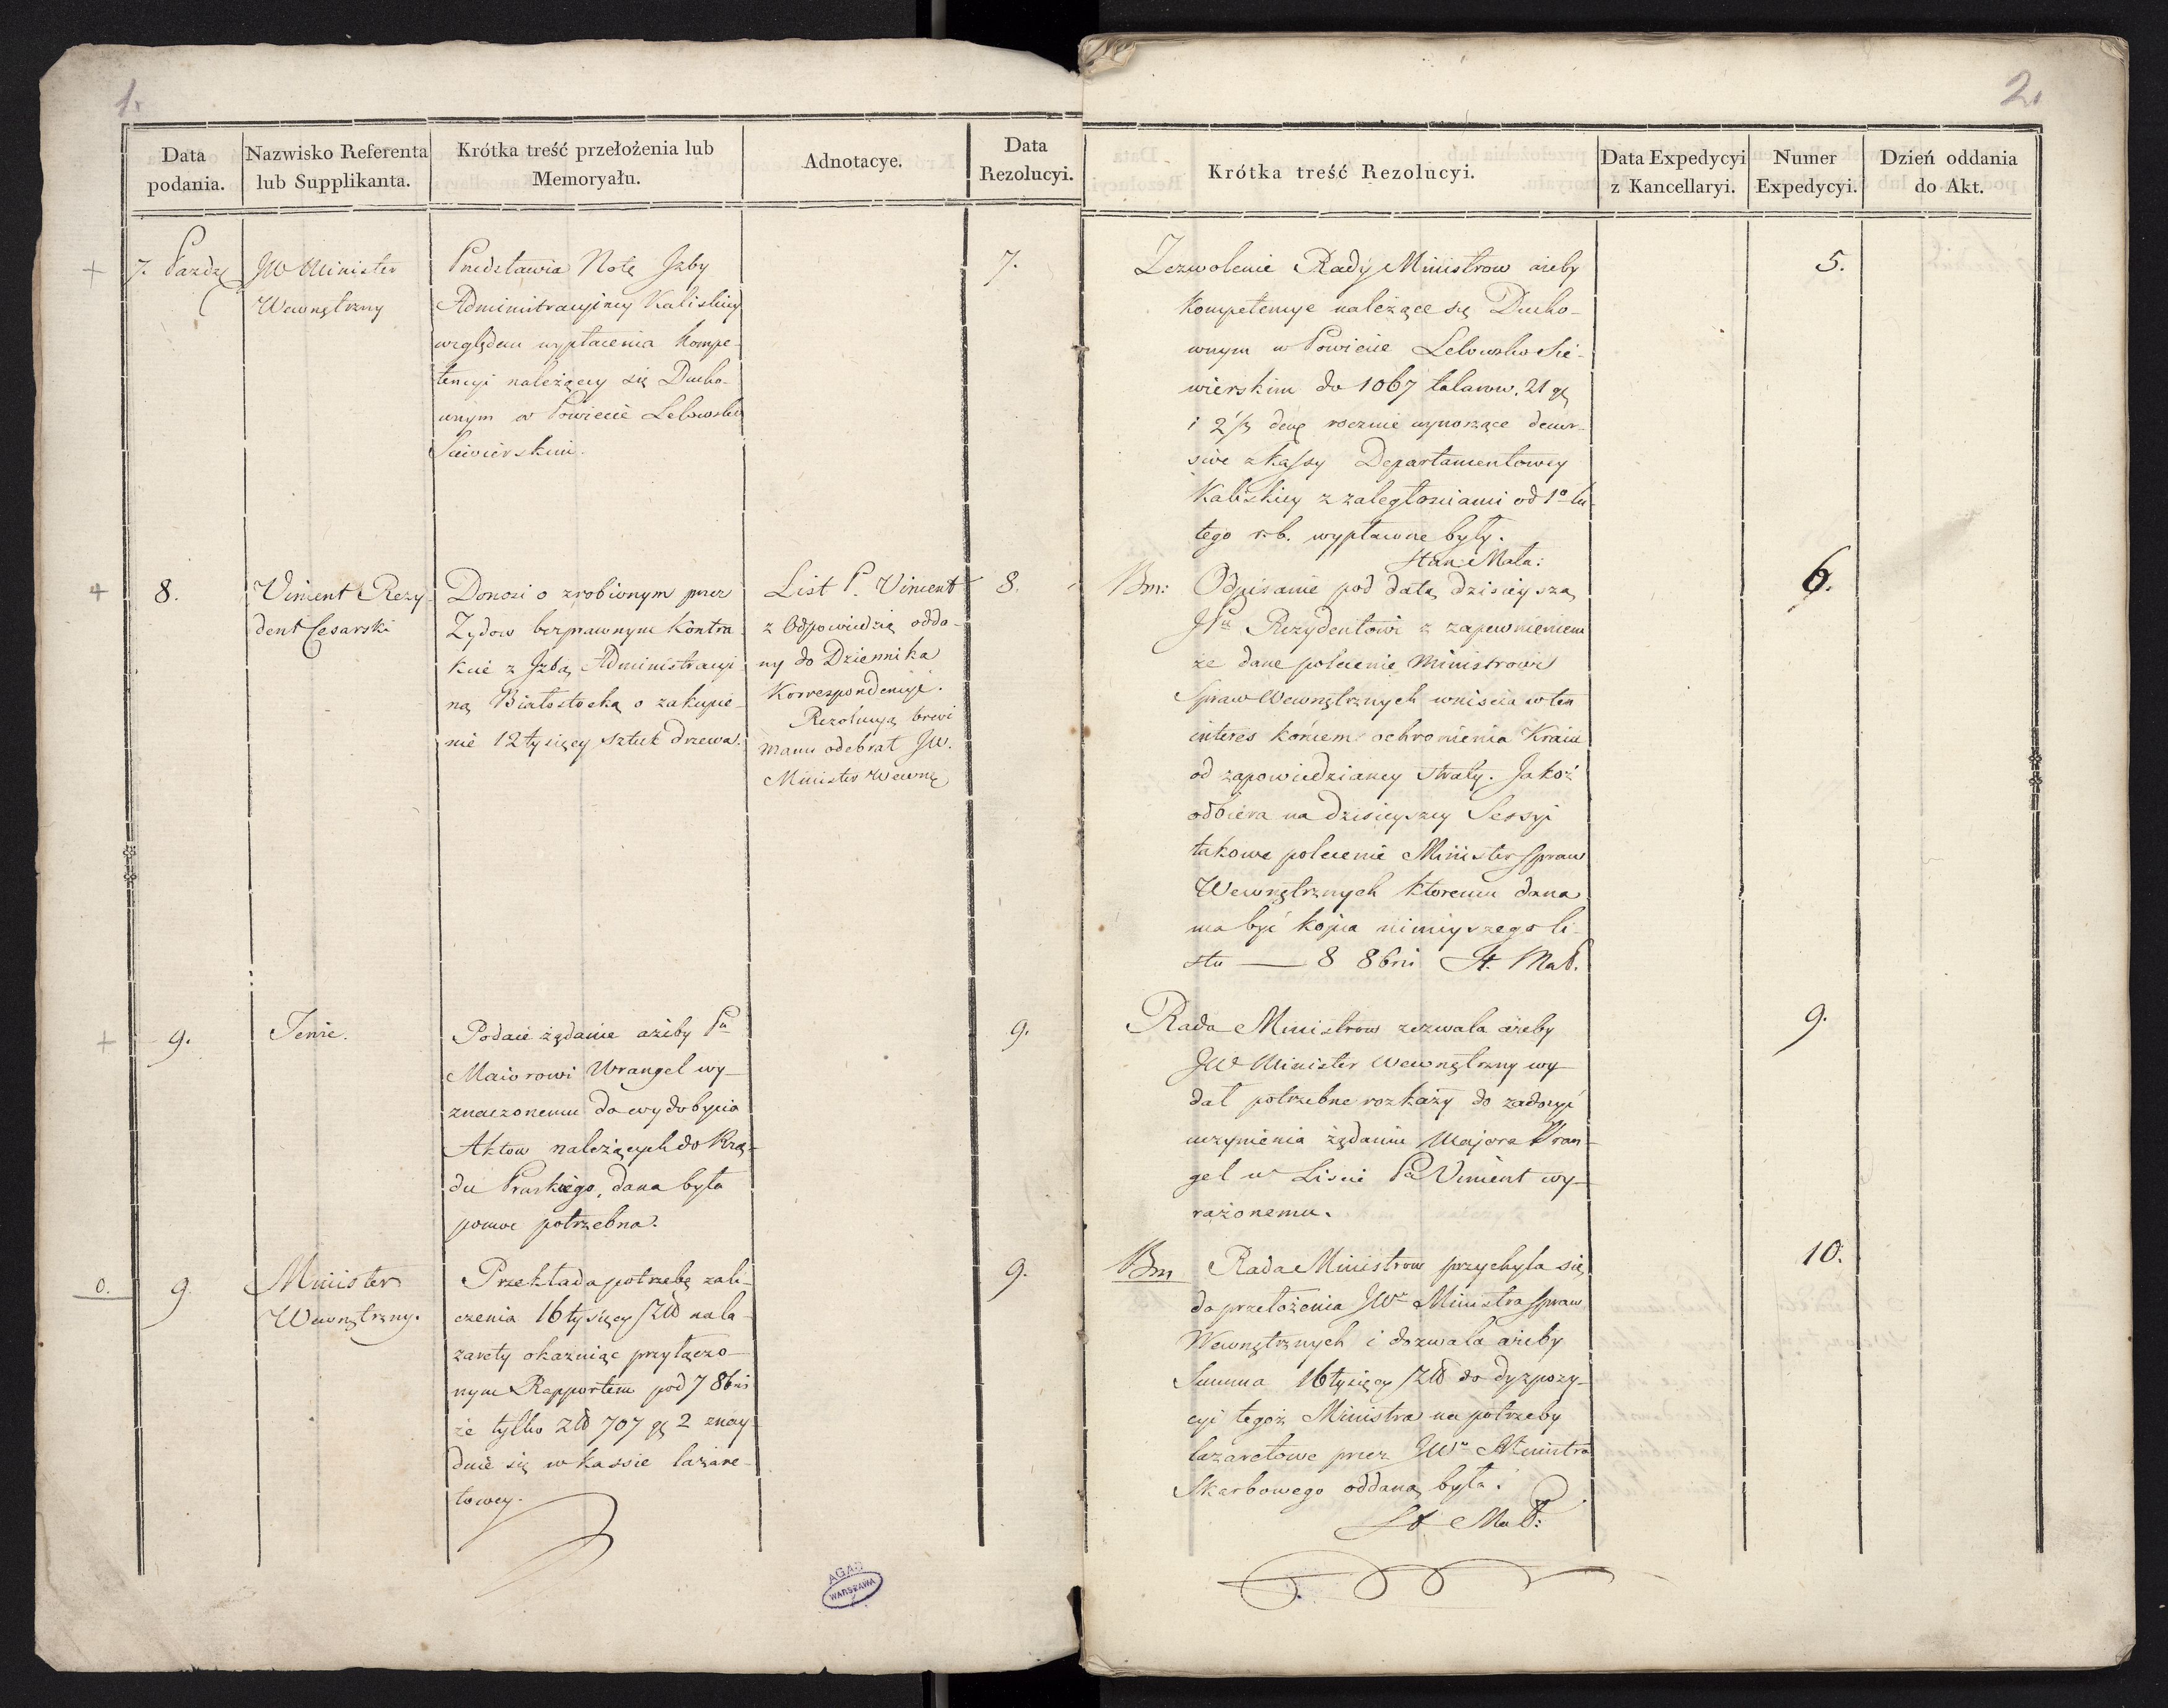 1.
Data
podania.
Nazwisko Referenta
lub Supplikanta.
Krótka treść przełożenia lub
Memoryału.
Adnotacye.
Data
Rezolucyi.
+ 7. Paźdz
JW Minister
Wewnętrzny
Przedstawia Notę Jzby
Administracyiney Kaliskiey
względem wypłacenia kompe-
tencyi należącey się Ducho-
wnym w Powiecie Lelowsko
Siewierskim.
7.
+ 8.
Vincent Rezy-
dent Cesarski
Donosi o zrobionym przez
Zydow bezprawnym kontra-
kcie z Jzbą Administracyi
ną Białostocką o zakupie-
nie 12 tysięcy sztuk drzewa.
List P. Vincent
z Odpowiedzią odda-
ny do Dziennika
Korrespondencyi.
Rezolucyą brevi
manu odebrał JW.
Minister Wewnę
8.
+ 9.
Tenże.
Podaie żądanie ażeby Pu
Maiorowi Wrangel wy-
znaczonemu do wydobycia
Aktow należących do Rzą-
du Pruskiego, dana była
pomoc potrzebna.
9.
0. 9.
Minister
Wewnętrzny.
Przekłada potrzebę zali-
czenia 16 tysięcy Złł na la-
zarety okazuiąc przyłączo-
nym Rapportem pod 7 8bris
że tylko Złł 707 g 2 znay-
duie się w Kassie lazare-
towey.
9.
AGAD
WARSZAWA
2.
Krótka treść Rezolucyi.
Data Expedycyi
z Kancellaryi.
Numer
Expedycyi.
Dzień oddania
do Akt.
Zezwolenie Rady Ministrow ażeby
kompetencye należące się Ducho-
wnym w Powiecie Lelowsko Sie-
wierskim do 1067 talarow. 21 g
i 2/5 den rocznie wynoszące
z kassy Departamentowey
Kaliskiey z zaległościami od 1o lu-
tego r.b. wypłacone były.
Stan: Mała:
5.
Bm: Odpisanie pod datą dzisieyszą
JPu Rezydentowi z zapewnieniem
że dane polecenie Ministrowi
Spraw Wewnętrznych wniścia w ten
interes końcem ochronienia Kraiu
od zapowiedzianey straty. Jakoż
odbiera na dzisieyszey Sessyi
takowe polecenie Minister Spraw
Wewnętrznych ktoremu dana
ma być kopia ninieyszego li-
stu — 8 8bris St. Mał.
6.
Rada Ministrow zezwala ażeby
JW Minister Wewnętrzny wy-
dał potrzebne rozkazy do zadosyć
uczynienia żądaniu Majora Wran-
gel w Liscie Pa Vincent wy-
rażonemu.
9.
Bm Rada Ministrow przychyla się
do przełożenia JWo Ministra Spraw
Wewnętrznych i dozwala ażeby
Summa 16 tysięcy Złł do dyspozy-
cyi tegoż Ministra na potrzeby
lazaretowe przez JWo Ministra
Skarbowego oddaną była.
St Mał:
10.